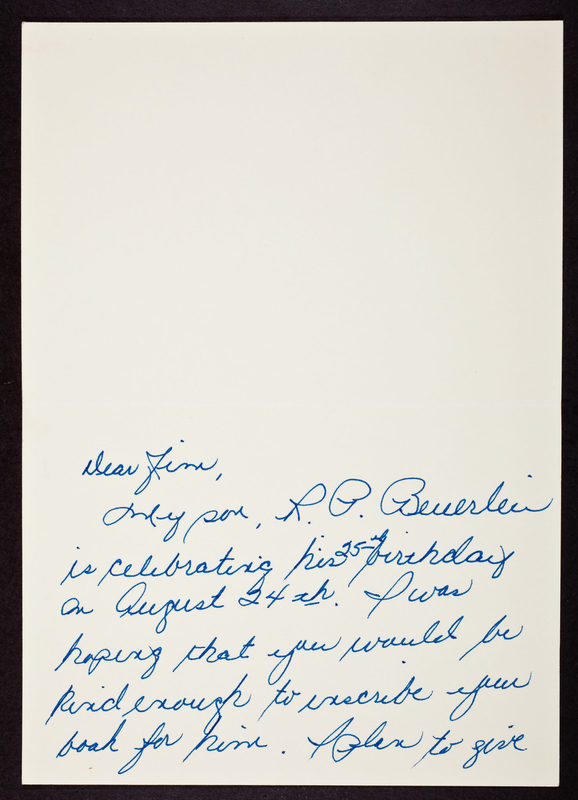 Dear Jim,
My son, R. P. Beuerlein
is celebrating his 25th birthday
on August 24th. I was
hoping that you would be
kind enough to inscribe your
book for him. I plan to give